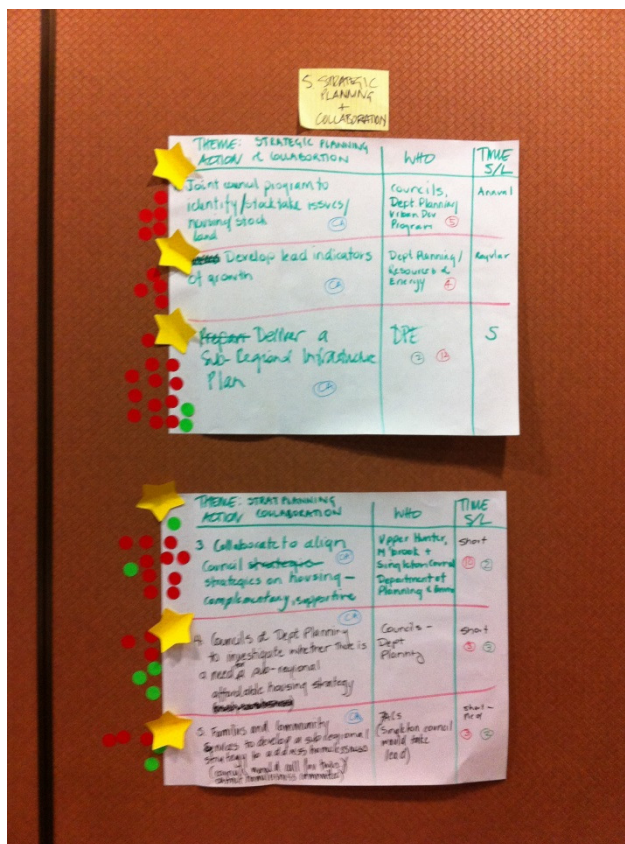 5. STRATEGIC
PLANNING
+
COLLABORATION
THEME: STRATEGIC PLANNING
ACTION & COLLABORTION
WHO
TIME
S/L
Joint council program to
identify/stocktake issues/
housing/stock
land
CA
Councils,
Dept. Planning/
Urban Dev
Program
5
Annual
Develop lead indicators
of growth
CA
Dept Planning/
Resources &
Energy
4
Regular
Prepare Deliver a
Sub-Regional Infrastructure
Plan
CA
DPE
2
S
THEME: STRAT PLANNING
ACTION COLLABORATION
WHO
TIME
S/L
3. Collaborate to align
Council strategic
strategies on housing -
complementary & supportive
CA
Upper Hunter,
M'brook +
Singleton Council
Department of
Planning &
short
10
2
4. Councils & Dept Planning
to investigate whether there is
a need sub-regional
affordable housing strategy
CA
Councils -
Dept
Planning
short
5. Families and Community
to develop a sub regional
strategy to address homelessness
CA
FACS
(Singleton council
would take
lead)
short-
med
3